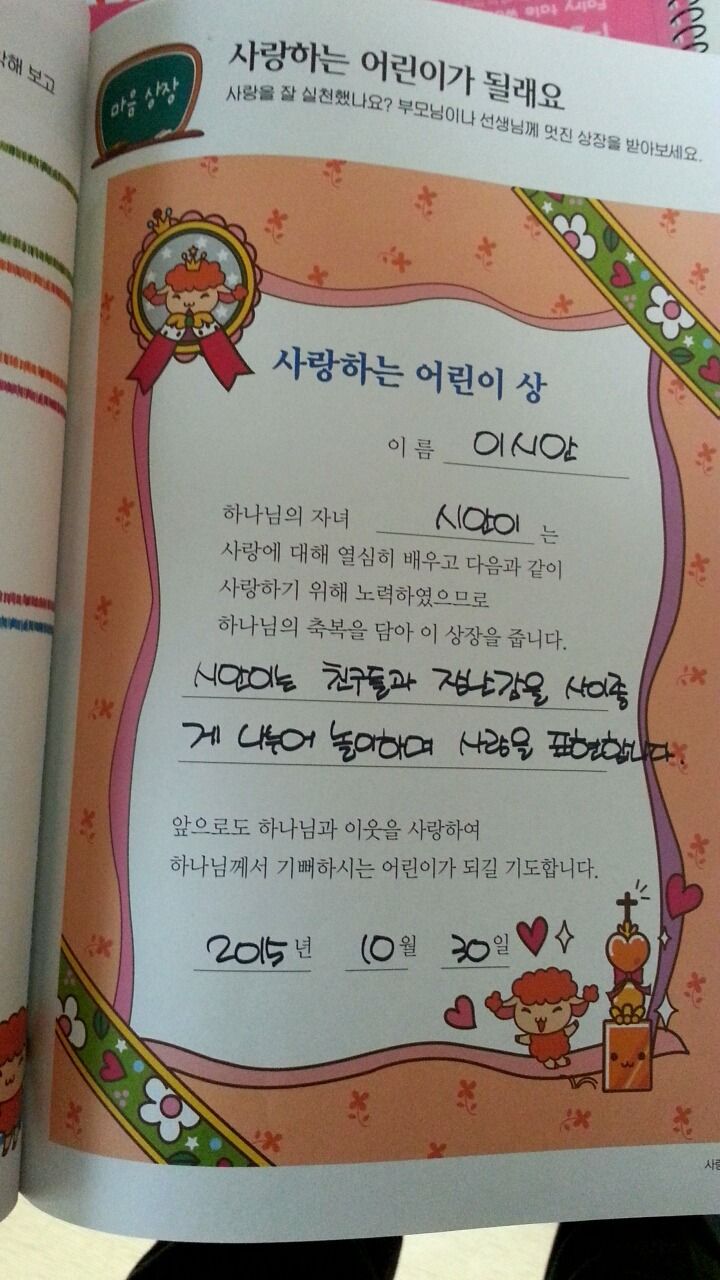 Fairy tale
각해 보고
마음 상장
사랑하는 어린이가 될래요
사랑을 잘 실천했나요? 부모님이나 선생님께 멋진 상장을 받아보세요.
사랑하는 어린이 상
이 름 이시안
하나님의 자녀 시안이 는
사랑에 대해 열심히 배우고 다음과 같이
사랑하기 위해 노력하였으므로
하나님의 축복을 담아 이 상장을 줍니다.
시안이는 친구들과 장난감을 사이좋
게 나누어 놀이하며 사랑을 표현합니다.
앞으로도 하나님과 이웃을 사랑하여
하나님께서 기뻐하시는 어린이가 되길 기도합니다.
2015 년 10 월 30 일